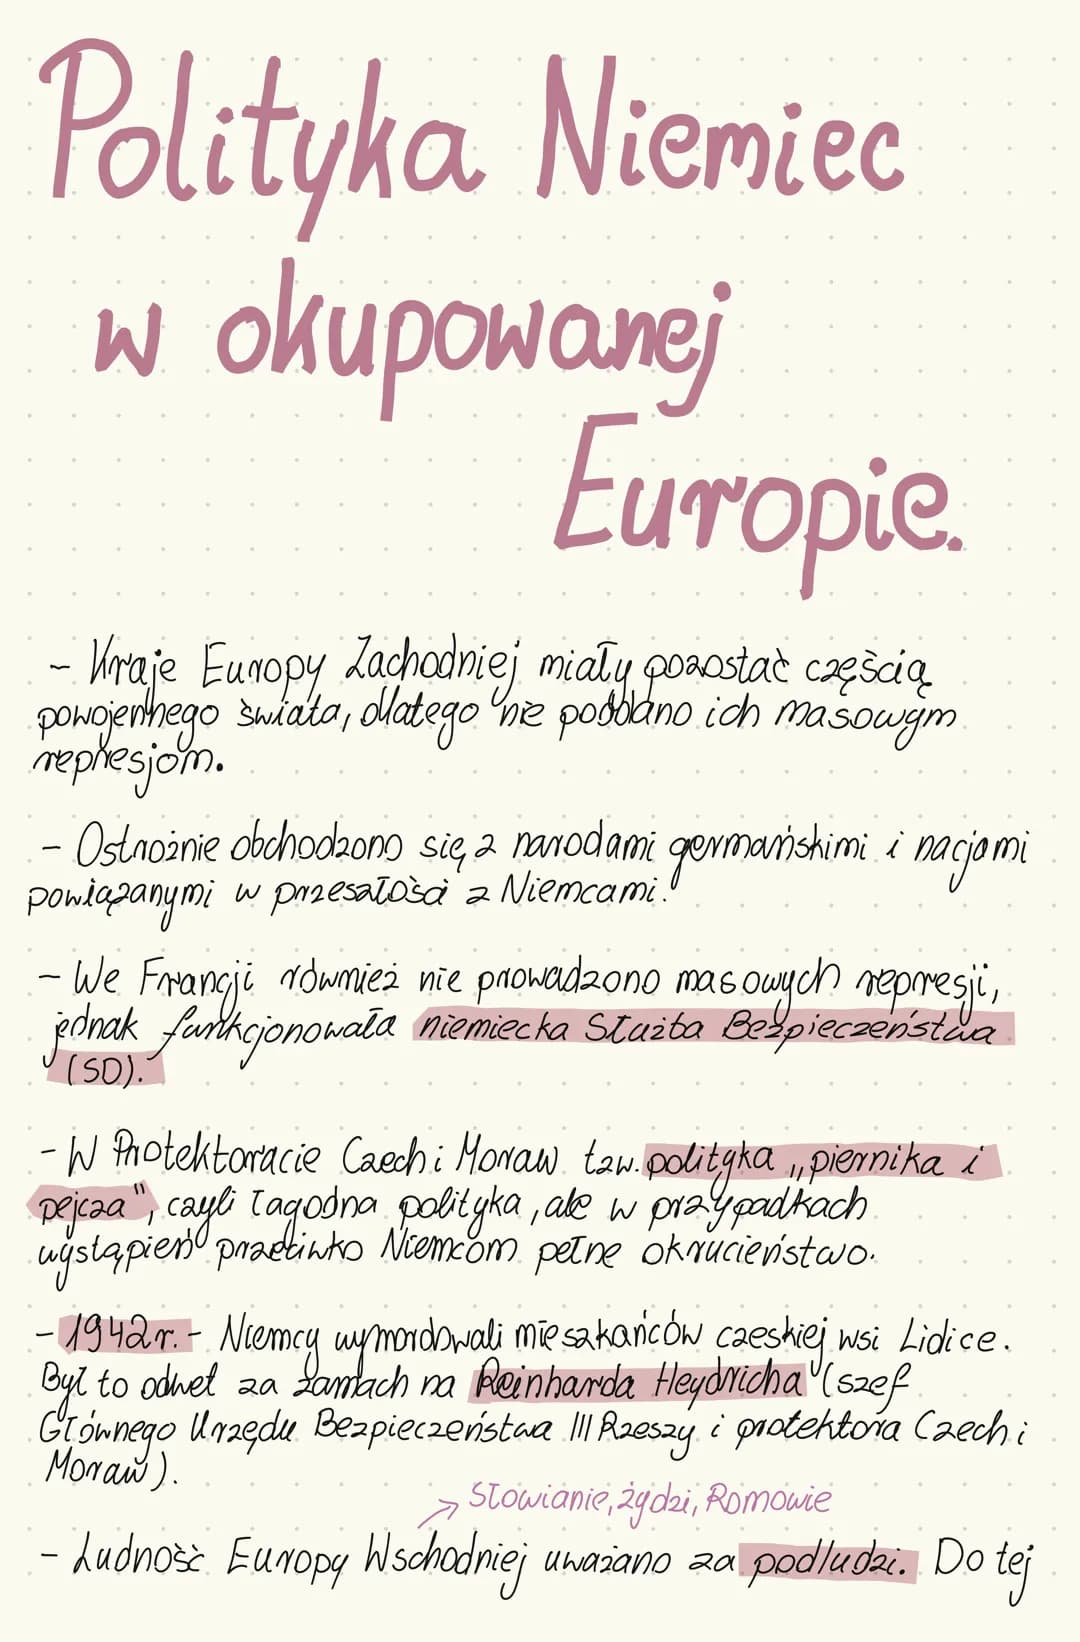 Polityka Niemiec
w okupowanej
Europie.
- Kraje Europy Zachodniej miały pozostać częścią
powojennego świata, dlatego nie poddano ich masowym
represjom.
- Ostrożnie obchodzono się z narodami germańskimi i nacjami
powiązanymi w przeszłości z Niemcami.
- We Francji również nie prowadzono masowych represji,
jednak funkcjonowała niemiecka Służba Bezpieczeństwa
(SD).
- W Protektoracie Czech i Moraw tzw. polityka „piernika i
pejcza", czyli łagodna polityka, ale w przypadkach
wystąpień przeciwko Niemcom pełne okrucieństwo.
- 1942r. - Niemcy wymordowali mieszkańców czeskiej wsi Lidice.
Był to odwet za zamach na Reinharda Heydricha (szef
Głównego Urzędu Bezpieczeństwa III Rzeszy i protektora Czech i
Moraw).
Słowianie, żydzi, Romowie
- Ludność Europy Wschodniej uważano za podludzi. Do tej